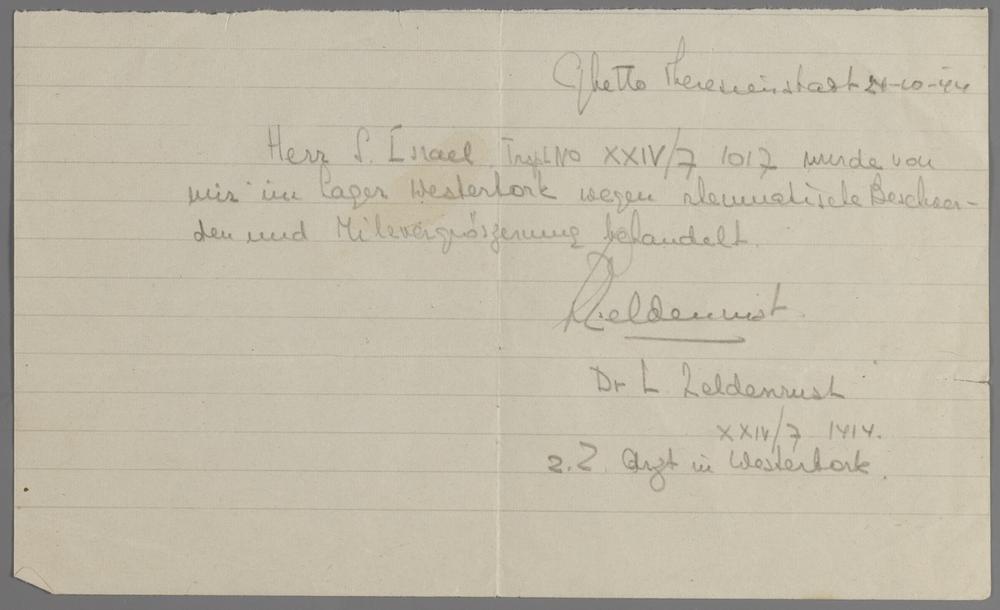 Ghetto Theresienstadt 21-10-44
Herr S. Israel TrsptNo XXIV/7 1017 wurde von
mir im Lager Westerbork wegen rheumatische Beschwer-
den und Milzvergröszerung behandelt.
Zeldenrust
Dr L. Zeldenrust
XXIV/7 1414.
z.Z. Arzt in Westerbork.